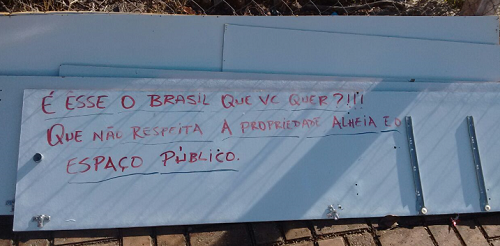 É ESSE O BRASIL QUE VC QUER?!!!
QUE NÃO RESPEITA A PROPRIEDADE ALHEIA E O
ESPAÇO PÚBLICO.